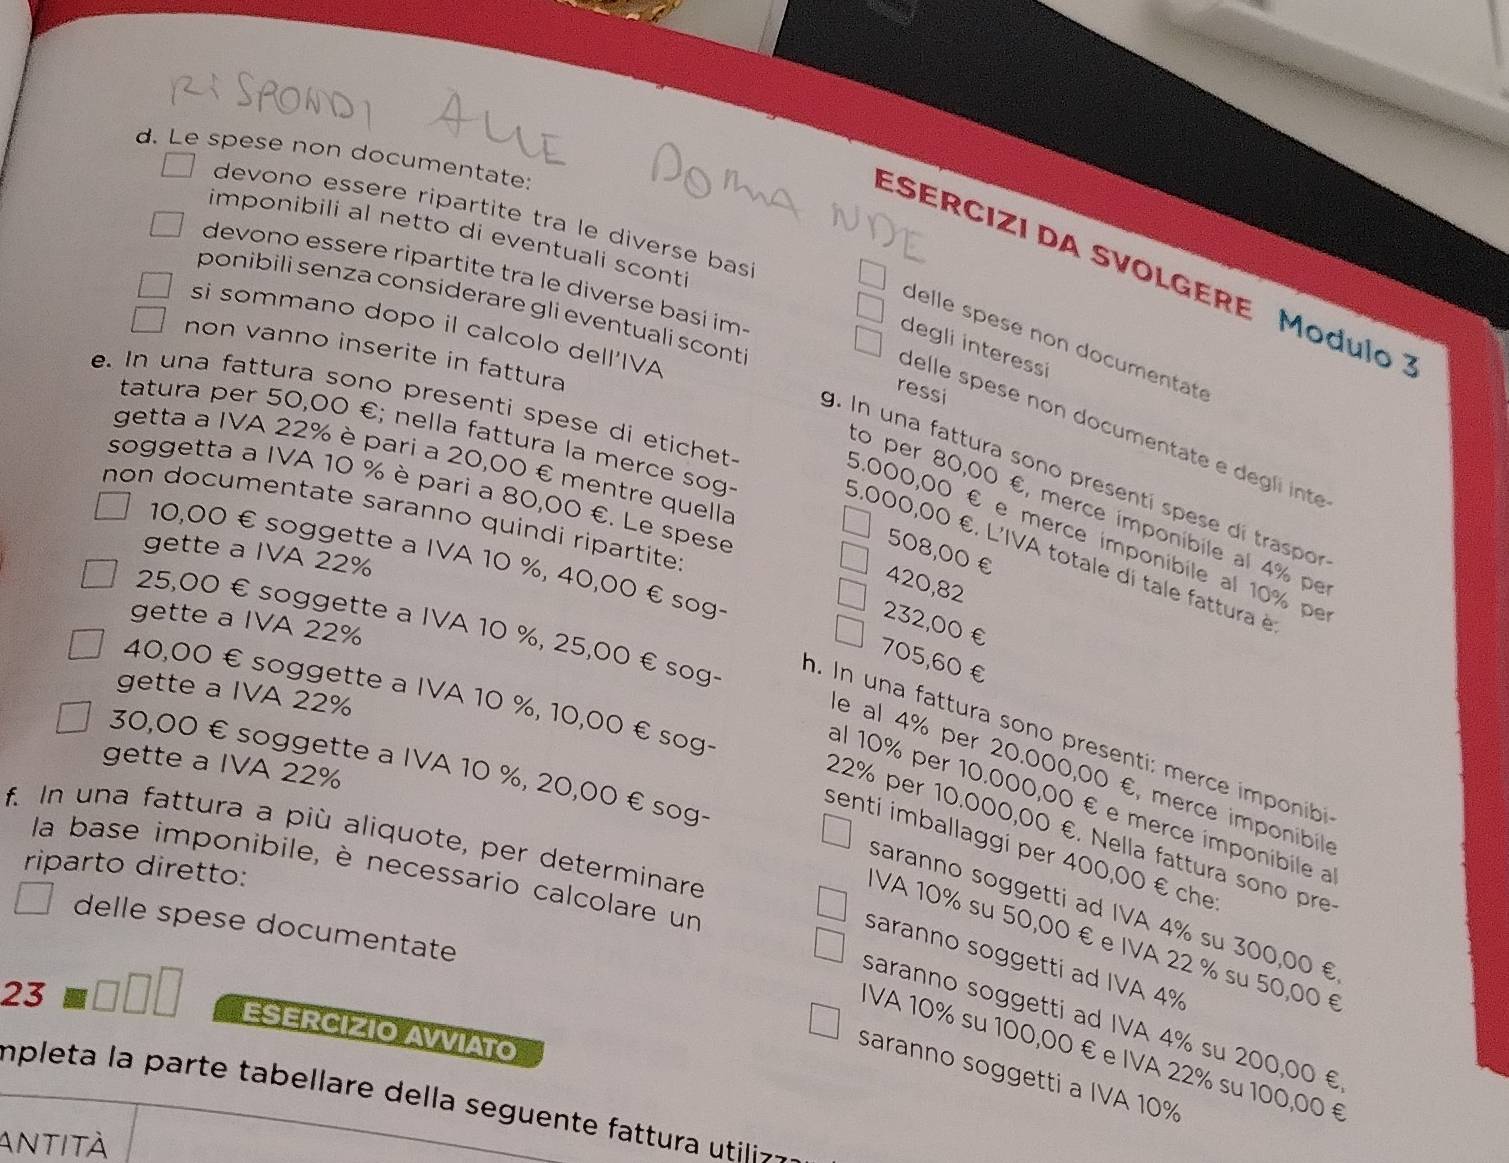 RISPONDI ALLE DOMANDE
d. Le spese non documentate:
devono essere ripartite tra le diverse basi
imponibili al netto di eventuali sconti
devono essere ripartite tra le diverse basi im-
ponibili senza considerare gli eventuali sconti
si sommano dopo il calcolo dell'IVA
non vanno inserite in fattura
e. In una fattura sono presenti spese di etichet-
tatura per 50,00 €; nella fattura la merce sog-
getta a IVA 22% è pari a 20,00 € mentre quella
soggetta a IVA 10 % è pari a 80,00 €. Le spese
non documentate saranno quindi ripartite:
10,00 € soggette a IVA 10 %, 40,00 € sog-
gette a IVA 22%
25,00 € soggette a IVA 10 %, 25,00 € sog-
gette a IVA 22%
40,00 € soggette a IVA 10 %, 10,00 € sog-
gette a IVA 22%
30,00 € soggette a IVA 10 %, 20,00 € sog-
gette a IVA 22%
f. In una fattura a più aliquote, per determinare
la base imponibile, è necessario calcolare un
riparto diretto:
delle spese documentate
ESERCIZI DA SVOLGERE Modulo 3
delle spese non documentate
degli interessi
delle spese non documentate e degli inte-
ressi
g. In una fattura sono presenti spese di traspor-
to per 80,00 €, merce imponibile al 4% per
5.000,00 € e merce imponibile al 10% per
5.000,00 €. L'IVA totale di tale fattura è:
508,00 €
420,82
232,00 €
705,60 €
h. In una fattura sono presenti: merce imponibi-
le al 4% per 20.000,00 €, merce imponibile
al 10% per 10.000,00 € e merce imponibile al
22% per 10.000,00 €. Nella fattura sono pre-
senti imballaggi per 400,00 € che:
saranno soggetti ad IVA 4% su 300,00 €,
IVA 10% su 50,00 € e IVA 22 % su 50,00 €
saranno soggetti ad IVA 4%
saranno soggetti ad IVA 4% su 200,00 €,
IVA 10% su 100,00 € e IVA 22% su 100,00 €
saranno soggetti a IVA 10%
23 ESERCIZIO AVVIATO
mpleta la parte tabellare della seguente fattura utilizz
ANTITÀ